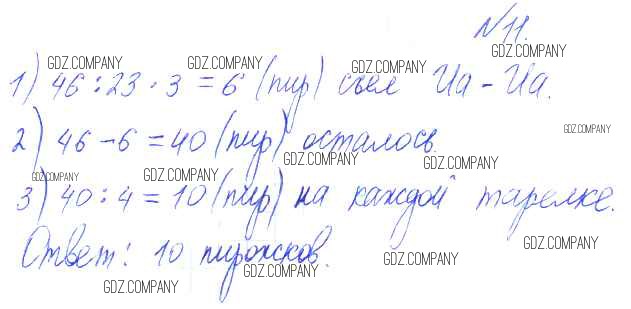 № 11.
1) 46 : 23 · 3 = 6 (пир) съел Иа - Иа.
2) 46 - 6 = 40 (пир) осталось.
3) 40 : 4 = 10 (пир) на каждой тарелке.
Ответ: 10 пирожков.
GDZ.COMPANY
GDZ.COMPANY
GDZ.COMPANY
GDZ.COMPANY
GDZ.COMPANY
GDZ.COMPANY
GDZ.COMPANY
GDZ.COMPANY
GDZ.COMPANY
GDZ.COMPANY
GDZ.COMPANY
GDZ.COMPANY
GDZ.COMPANY
GDZ.COMPANY